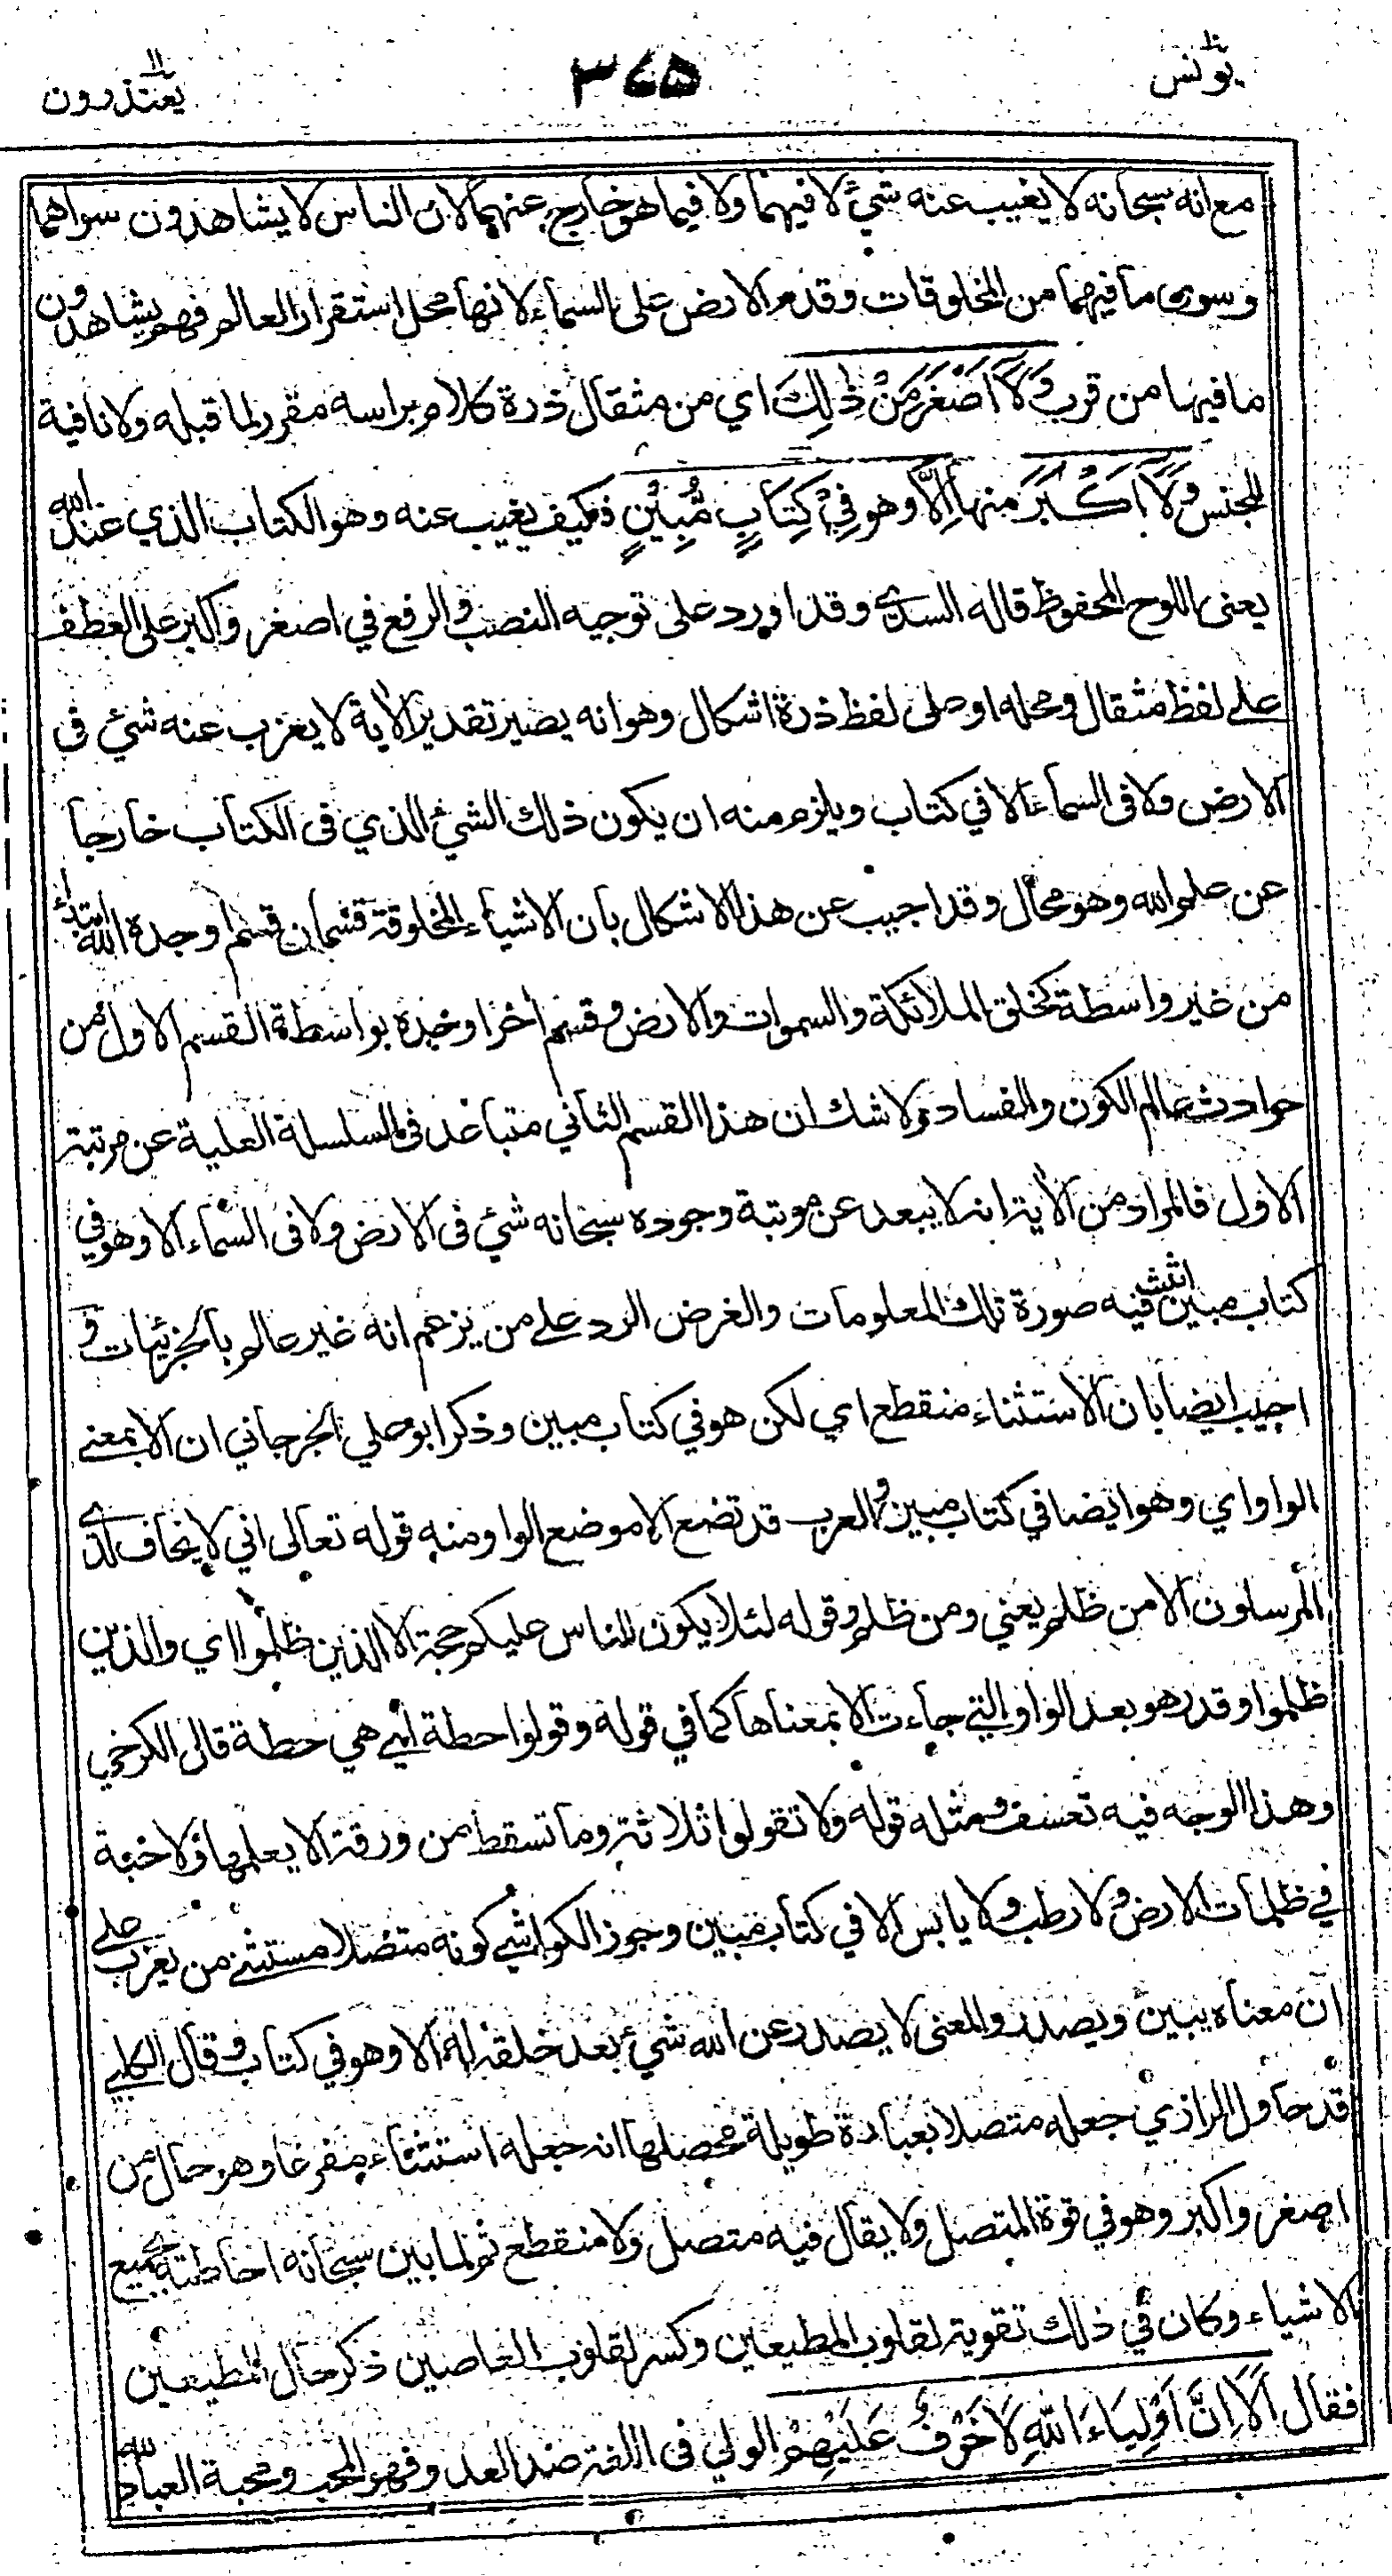 يونس ١٠
٣٤٥
يعتذرون ١١
مع انه سبحانه لا يغيب عنه شيء لا فيهما ولا فيما هو خارج عنهما لان الناس لا يشاهدون سواهما
وسوى ما فيهما من المخلوقات وقدم الارض على السماء لانها محل استقرار العالم فهم يشاهدون
ما فيها من قرب وَلَا اَصْغَرَ مِنْ ذٰلِكَ اي من مثقال ذرة كلام براسه مقرر لما قبله ولا نافية
للجنس وَلَا اَكْبَرَ منها اِلَّا وهو فِيْ كِتَابٍ مُّبِيْنٍ فكيف يغيب عنه وهو الكتاب الذي عند الله
يعنى اللوح المحفوظ قاله السدي وقد اورد على توجيه النصب والرفع في اصغر واكبر على العطف
على لفظ مثقال ومحله او على لفظ ذرة اشكال وهو انه يصير تقدير الاية لا يعزب عنه شيء فى
الارض ولا فى السماء الا في كتاب ويلزم منه ان يكون ذلك الشيء الذي فى الكتاب خارجا
عن علم الله وهو محال وقد اجيب عن هذا الاشكال بان الاشياء المخلوقة قسمان قسم اوجده الله ابتداء
من غير واسطة كخلق الملائكة والسموات والارض وقسم اخر اوجده بواسطة القسم الاول من
حوادث عالم الكون والفساد ولا شك ان هذا القسم الثاني متباعد فى السلسلة العلية عن مرتبة
الاول فالمراد من الاية انه لا يبعد عن مرتبة وجوده سبحانه شيء فى الارض ولا فى السماء الا وهو في
كتاب مبين اثبت فيه صورة تلك المعلومات والغرض الرد على من يزعم انه غير عالم بالجزئيات و
اجيب ايضا بان الاستثناء منقطع اي لكن هو في كتاب مبين وذكر ابو علي الجرجاني ان الا بمعنى
الواو اي وهو ايضا في كتاب مبين والعرب قد تضع الا موضع الواو ومنه قوله تعالى اني لا يخاف لدي
المرسلون الا من ظلم يعني ومن ظلم وقوله لئلا يكون للناس عليكم حجة الا الذين ظلموا اي والذين
ظلموا وقدر هو بعد الواو التي جاءت الا بمعناها كما في قوله وقولوا حطة اي هي حطة قال الكرخي
وهذا الوجه فيه تعسف ومثله قوله ولا تقولوا ثلاثة وما تسقط من ورقة الا يعلمها ولا حبة
في ظلمات الارض ولا رطب ولا يابس الا في كتاب مبين وجوز الكواشي كونه متصلا مستثنى من يعزب على
ان معناه يبين ويصدر والمعنى لا يصدر عن الله شيء بعد خلقه له الا وهو في كتاب وقال الكلبي
قد حاول الرازي جعله متصلا بعبارة طويلة محصلها انه جعله استثناء مفرغا وهو حال من
اصغر واكبر وهو في قوة المتصل ولا يقال فيه متصل ولا منقطع ثم لما بين سبحانه احاطته بجميع
الاشياء وكان في ذلك تقوية لقلوب المطيعين وكسر لقلوب العاصين ذكر حال المطيعين
فقال اَلَا اِنَّ اَوْلِيَاءَ اللّٰهِ لَا خَوْفٌ عَلَيْهِمْ الولي فى اللغة ضد العدو فهو المحب ومحبة العباد لله